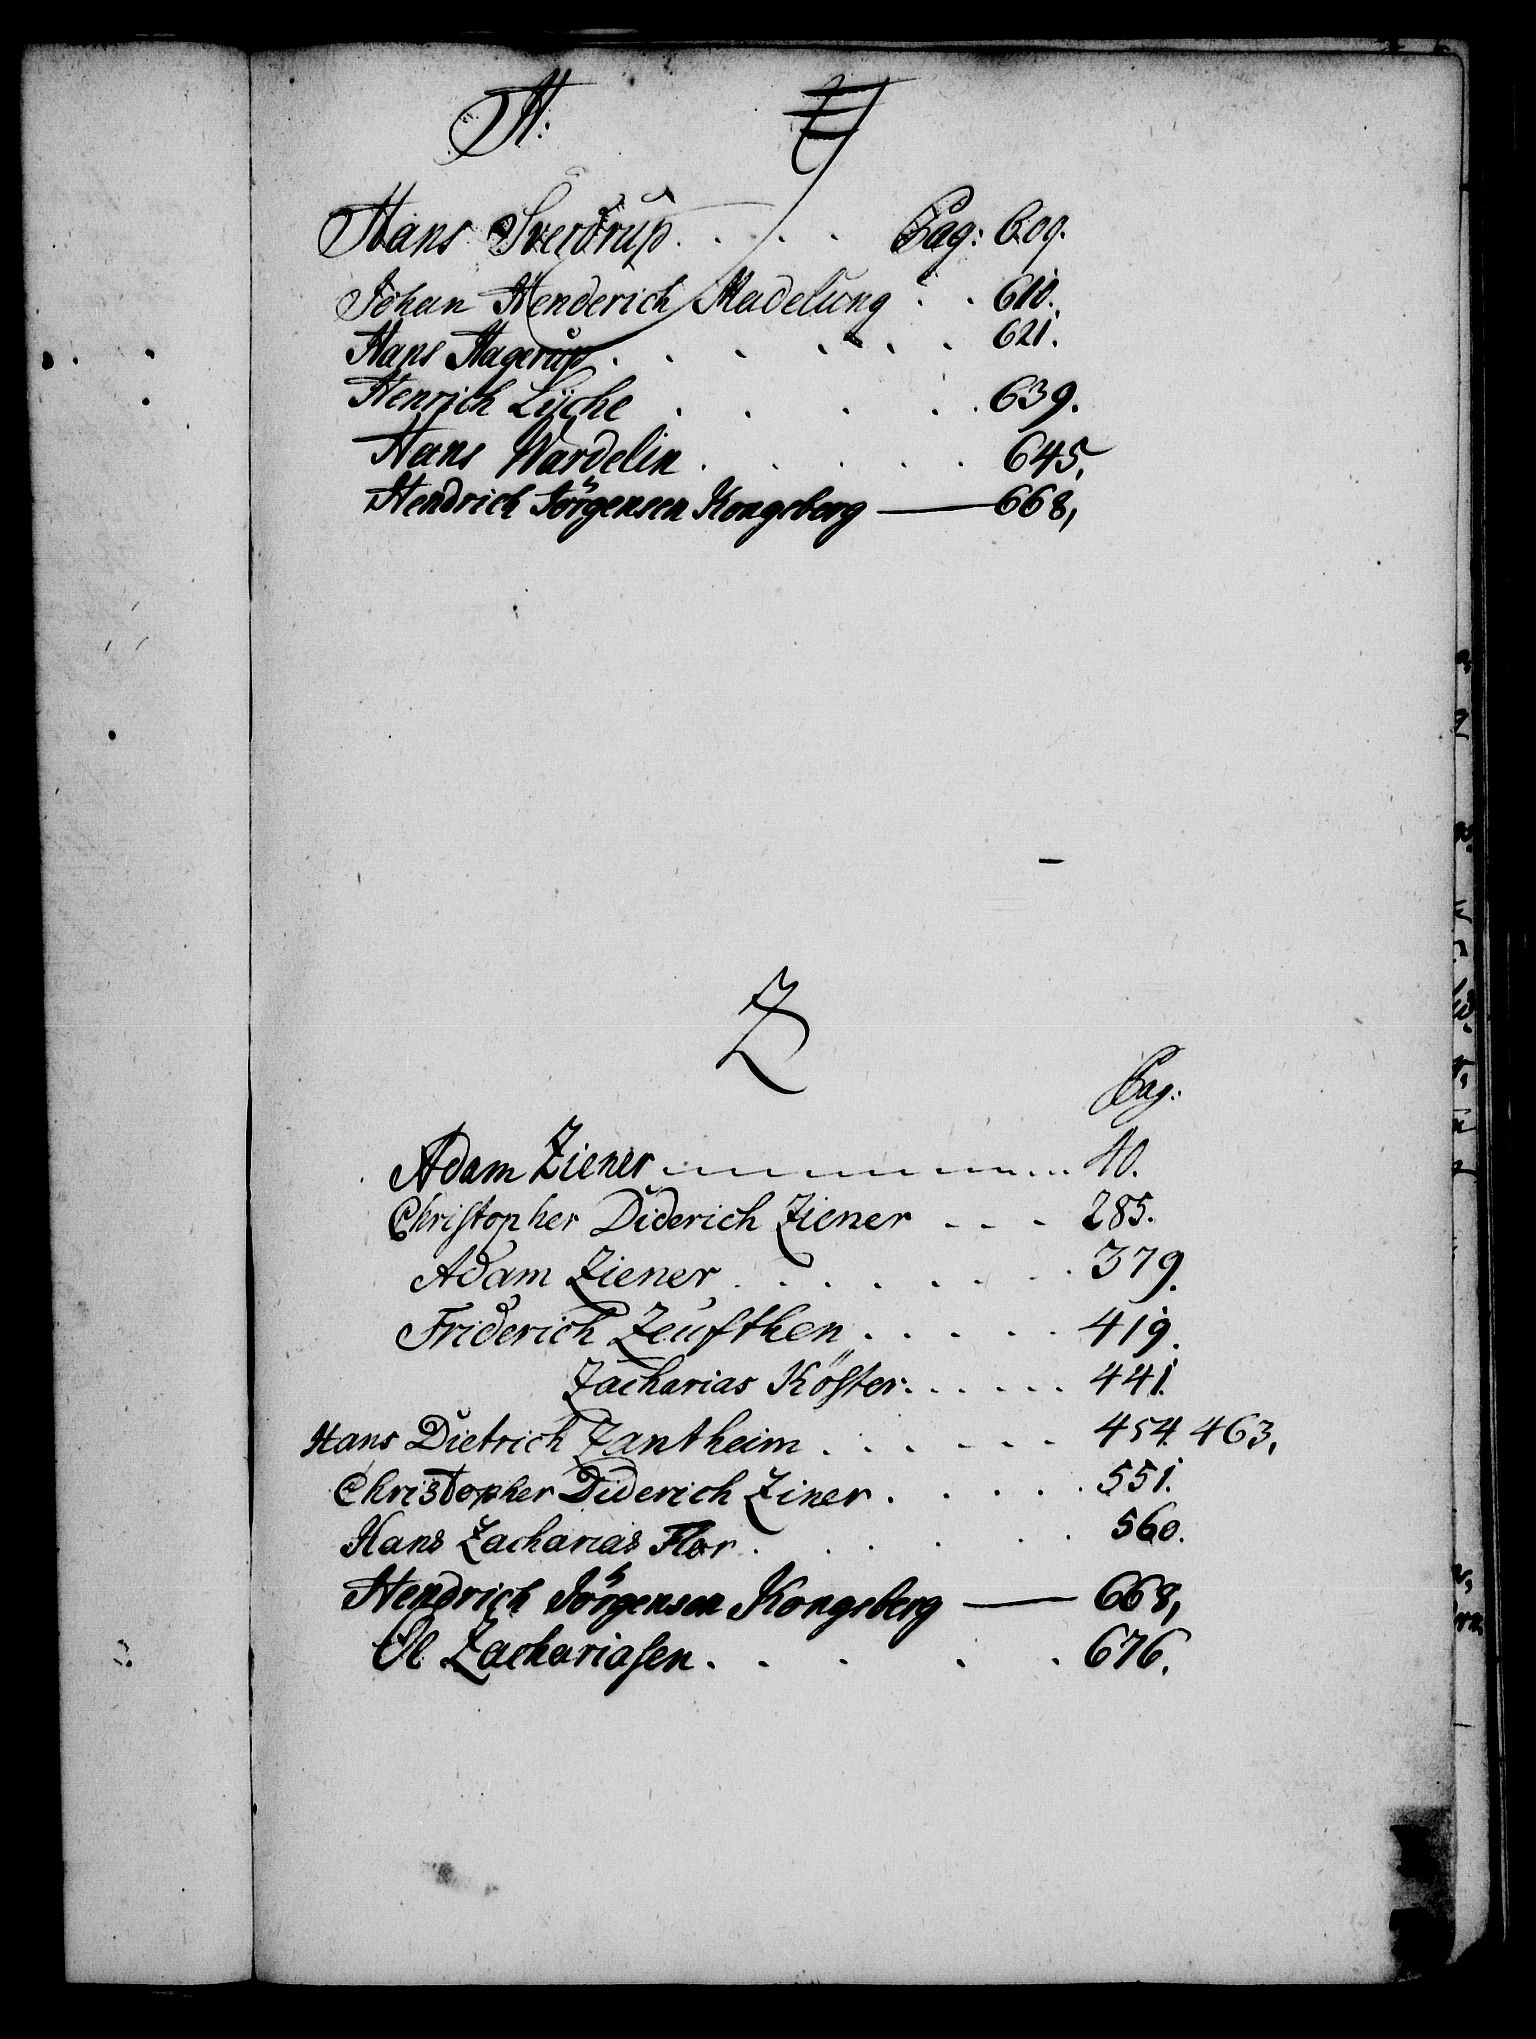 H:
Hans Sverdrup. . . . Pag: 609.
Johan Henderich Madelung . . 610.
Hans Hagerup . . . . . . . 621.
Henrich Lÿche . . . . . 639.
Hans Wardelin . . . . . 645,
Hendrich Jörgensen Kongsberg — 668,
Z
Pag:
Adam Ziener . . . 40.
Christopher Diderich Ziener - - - 285.
Adam Ziener . . . . . . . 379.
Friderich Zeufthen . . . . . 419.
Zacharias Köster. . . . . . 441.
Hans Dietrich Zantheim . . . . . . 454. 463,
Christopher Diderich Ziner . . . . . 551.
Hans Zacharias Flor . . . . . . 560.
Hendrich Jörgensen Kongsberg — 668,
Ol Zachariasen . . . . . 676.